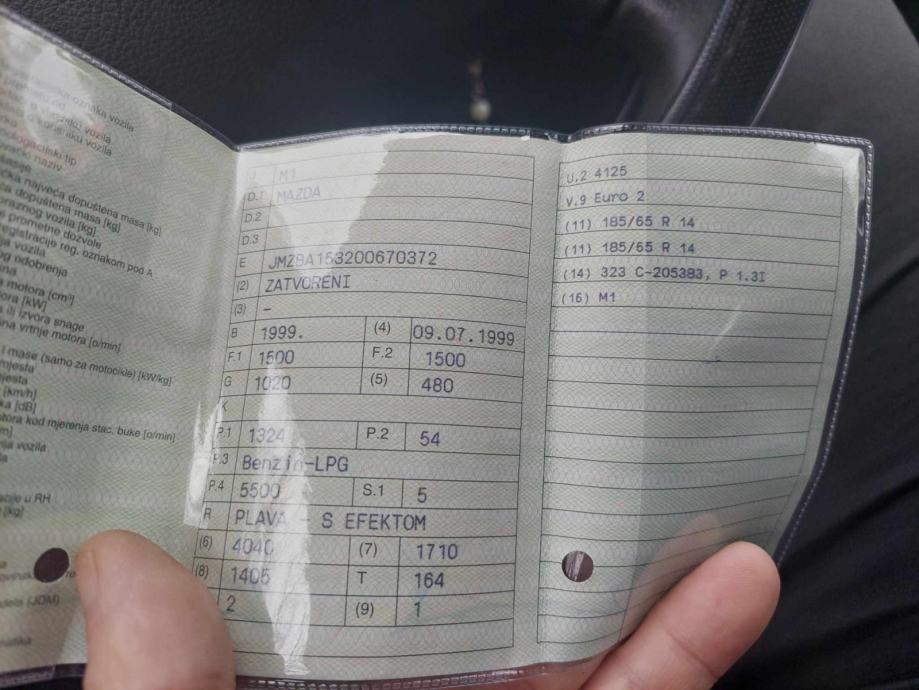 oznaka vozila
vozila
aku vozila
tip
naziv
najveća dopuštena masa [kg]
dopuštena masa [kg]
vozila [kg]
prometne dozvole
registracije reg. oznakom pod A
vozila
odobrenja
motora [cm³]
[kW]
ili izvora snage
vrtnje motora [o/min]
i mase (samo za motocikle) [kW/kg]
mjesta
[km/h]
[dB]
kod mjerenja stac. buke [o/min]
vozila
u RH
[kg]
(JOM)
J M1
D.1 MAZDA
D.2
D.3
E JMZBA153200670372
(2) ZATVORENI
(3) –
B 1999. (4) 09.07.1999
F.1 1500 F.2 1500
G 1020 (5) 480
K
P.1 1324 P.2 54
P.3 Benzin-LPG
P.4 5500 S.1 5
R PLAVA - S EFEKTOM
(6) 4040 (7) 1710
(8) 1405 T 164
2 (9) 1
U.2 4125
V.9 Euro 2
(11) 185/65 R 14
(11) 185/65 R 14
(14) 323 C-205383, P 1.3I
(16) M1